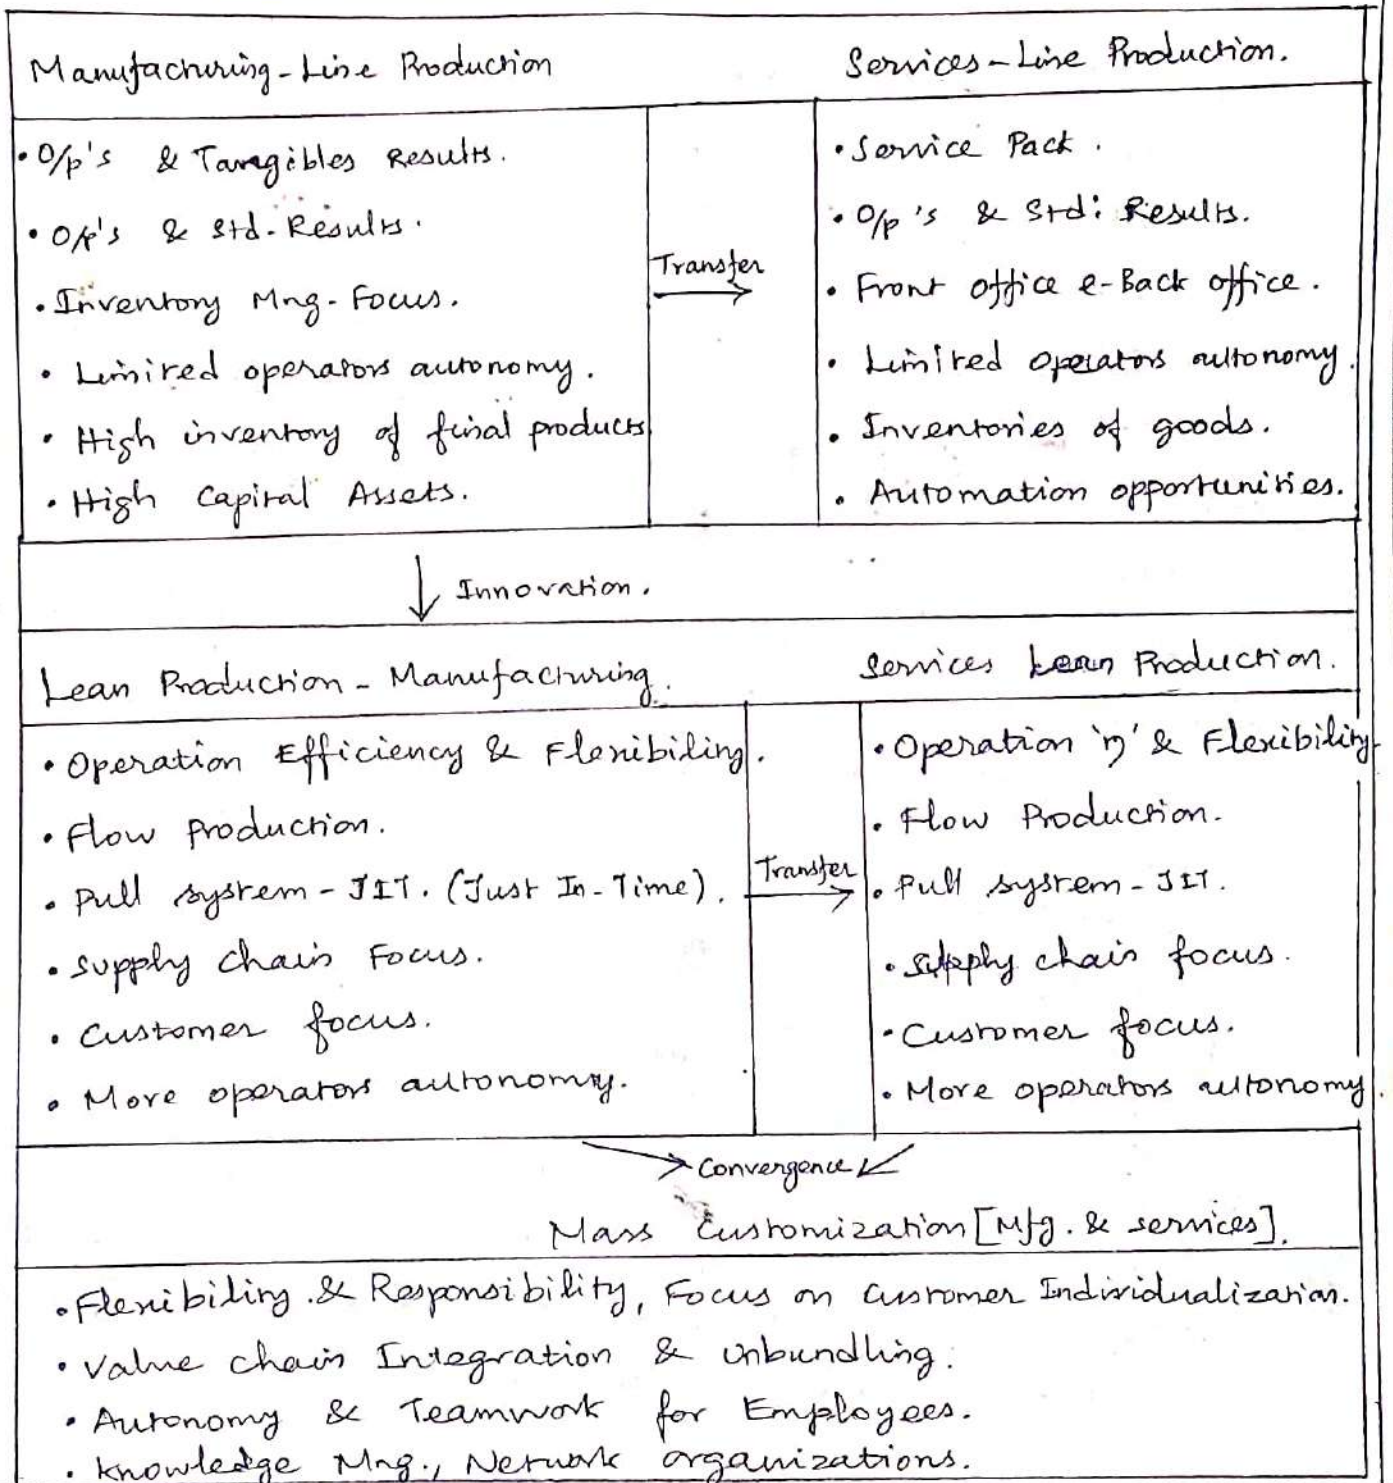 Manufacturing-Line Production
Services-Line Production.
• O/p's & Tangibles Results.
• O/p's & Std. Results.
• Inventory Mng-Focus.
• Limited operators autonomy.
• High inventory of final products
• High Capital Assets.
Transfer
• Service Pack.
• O/p's & Std: Results.
• Front office e-Back office.
• Limited Operators autonomy.
• Inventories of goods.
• Automation opportunities.
Innovation.
Lean Production - Manufacturing.
Services Lean Production.
• Operation Efficiency & Flexibility.
• Flow Production.
• Pull system - JIT. (Just In-Time).
• Supply chain Focus.
• Customer focus.
• More operators autonomy.
Transfer
• Operation 'η' & Flexibility.
• Flow Production.
• Pull system - JIT.
• Supply chain focus.
• Customer focus.
• More operators autonomy.
Convergence
Mass Customization [Mfg. & services].
• Flexibility & Responsibility, Focus on Customer Individualization.
• Value chain Integration & Unbundling.
• Autonomy & Teamwork for Employees.
• Knowledge Mng., Network organizations.